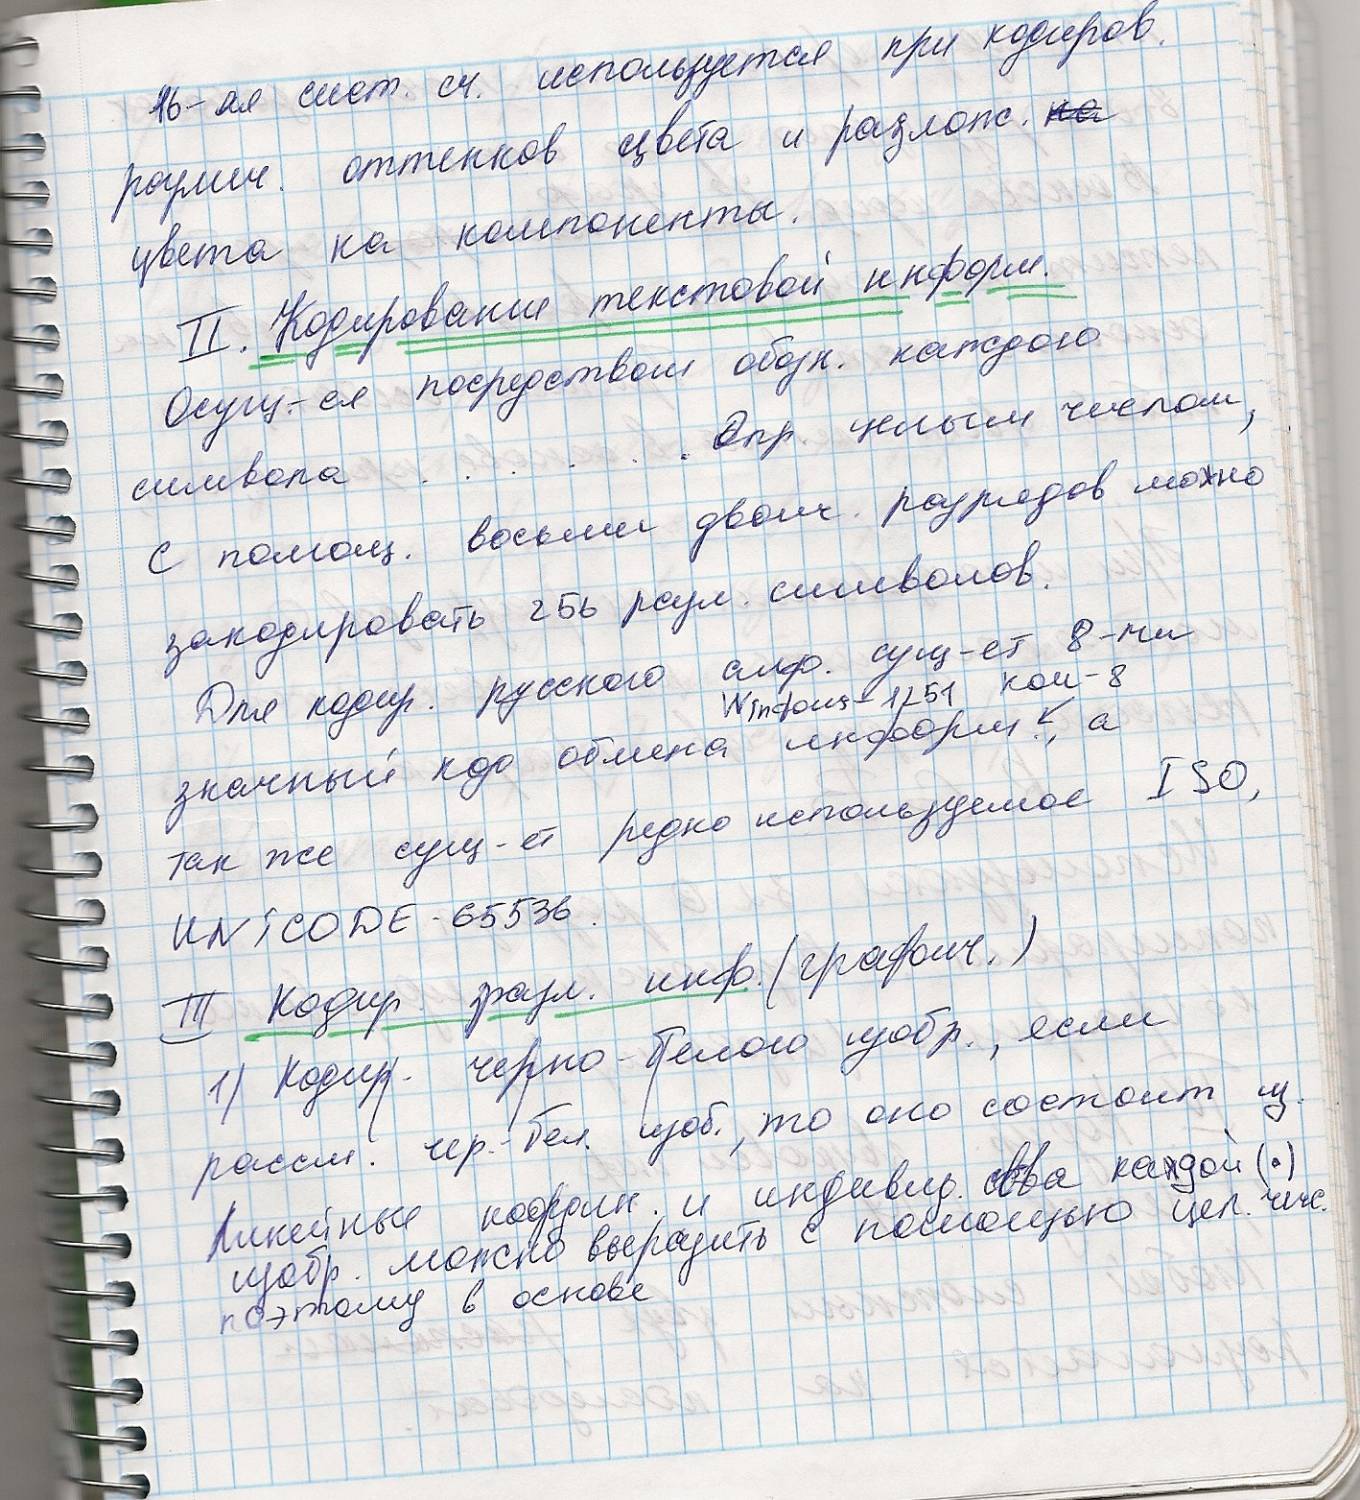 16-ая сист. сч. используется при кодиров.
различ. оттенков цвета и разлож. на
цвета на компоненты.
II. Кодирование текстовой информ.
Осущ-ся посредством обозн. каждого
символа . . . . . Опр. целым числом,
с помощ. восьми двоич. разрядов можно
закодировать 256 разл. символов.
Для кодир. русского алф. сущ-ет 8-ми
Windows-1251 кои-8
значный код обмена информ., а
так же сущ-ет редко используемое ISO,
UNiCODE - 65536.
III Кодир разл. инф. (графич.)
1) Кодир. черно-белого изобр., если
рассм. чер.-бел. изоб., то оно состоит из.
Линейные коордн. и индивид. св-ва каждой (•)
изобр. можно выразить с помощью цел. чис.
поэтому в основе